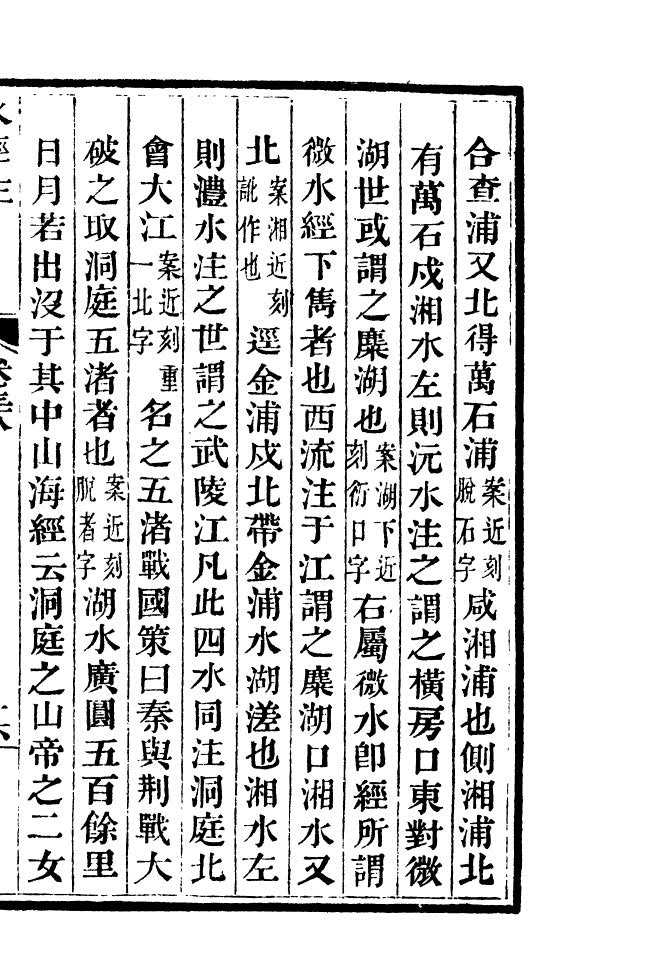 合查浦又北得萬石浦案近刻脫石字咸湘浦也側湘浦北
有萬石戍湘水左則沅水注之謂之橫房口東對微
湖世或謂之麋湖也案湖下近刻衍口字右屬微水卽經所謂
微水經下雋者也西流注于江謂之麋湖口湘水又
北案湘近刻訛作也逕金浦戍北帶金浦水湖溠也湘水左
則澧水注之世謂之武陵江凡此四水同注洞庭北
會大江案近刻重一北字名之五渚戰國策曰秦與荆戰大
破之取洞庭五渚者也案近刻脫者字湖水廣圓五百餘里
日月若出沒于其中山海經云洞庭之山帝之二女
水經注